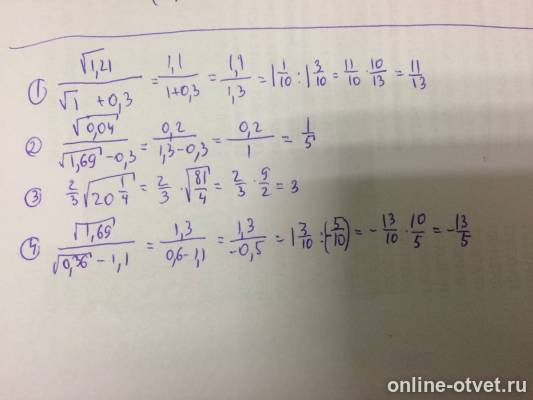 1) √1,21 / (√1 + 0,3) = 1,1 / (1+0,3) = 1,1 / 1,3 = 1 1/10 : 1 3/10 = 11/10 · 10/13 = 11/13
2) √0,04 / (√1,69 - 0,3) = 0,2 / (1,3 - 0,3) = 0,2 / 1 = 1/5
3) 2/3 √20 1/4 = 2/3 · √81/4 = 2/3 · 9/2 = 3
4) √1,69 / (√0,36 - 1,1) = 1,3 / (0,6 - 1,1) = 1,3 / -0,5 = 1 3/10 : (-5/10) = -13/10 · 10/5 = -13/5
online-otvet.ru